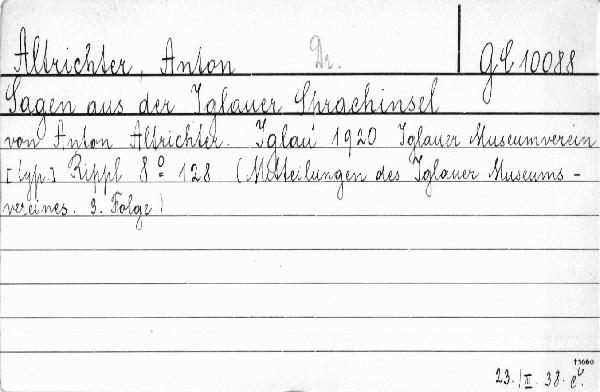 Altrichter, Anton Dr. GE 10088
Sagen aus der Iglauer Sprachinsel
von Anton Altrichter. Iglau 1920 Iglauer Museumverein
[typ.] Rippl 8° 128. (Mitteilungen des Iglauer Museums-
vereines. 3. Folge)
23./III. 38.